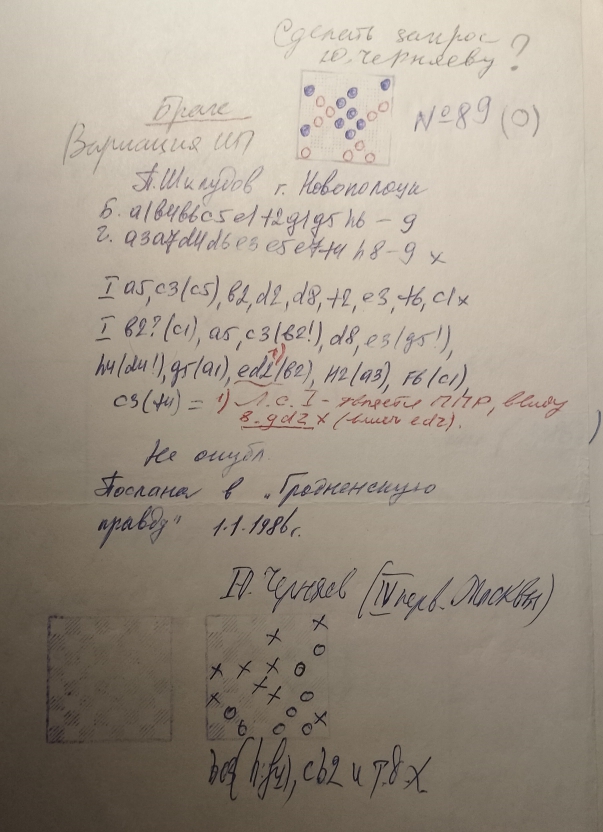 Сделать запрос
Ю. Черняеву?
№89 (0)
Браге
Вариация ИП
П. Шклудов г. Новополоцк
Б. a1b4b6c5e1+2g1g5h6 – 9
Ч. a3a7d4d6e3e5e7+4h8 – 9 x
I a5, c3(c5), b2, d2, d8, +2, e3, +6, c1x
I b2? (c1), a5, c3(b2!), d8, e3(g5!),
h4(d4!), g5(a1), ed2(b2), H2(a3), F6(c1),
c3(+4) = 1) Л.с. I - является ППР, ввиду
8. gd2 x (вместо ed2).
Не опубл.
Послана в "Гродненскую
правду" 1.1.1986г.
Ю. Черняев (IV перв. Москвы)
cb2 и т.д. X